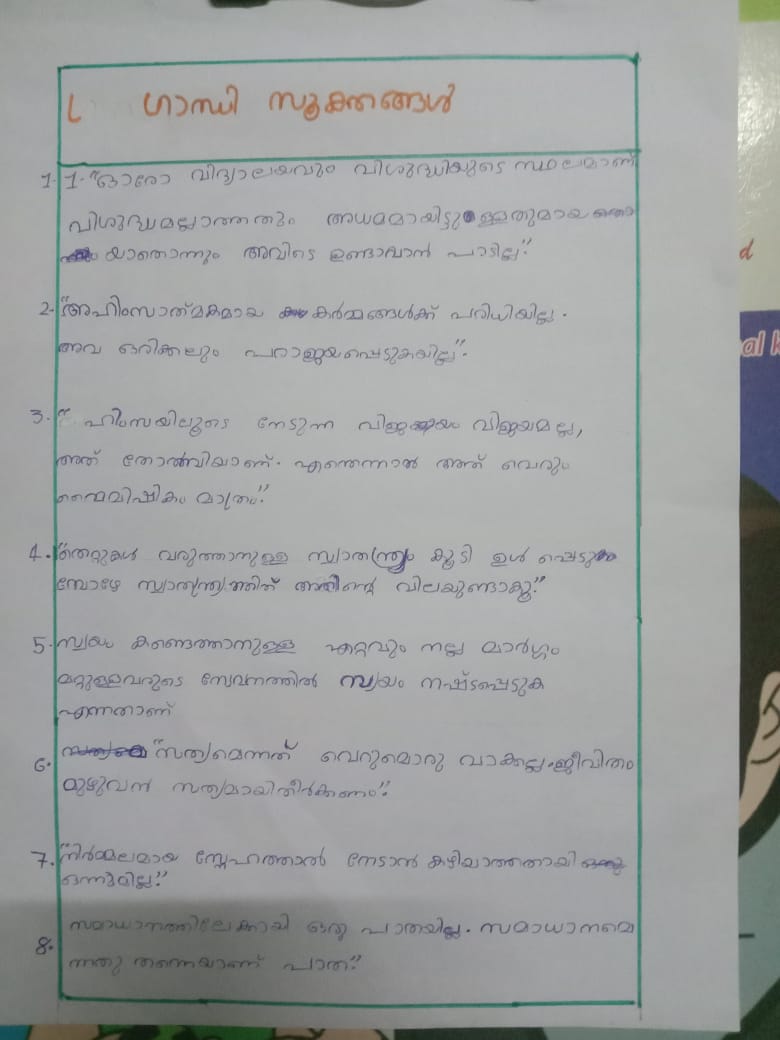 ഗാന്ധി സൂക്തങ്ങൾ
1. 1. "ഓരോ വിദ്യാലയവും വിശുദ്ധിയുടെ സ്ഥലമാണ്
വിശുദ്ധമല്ലാത്തതും അധമമായിട്ടുള്ളതുമായ
യാതൊന്നും അവിടെ ഉണ്ടാവാൻ പാടില്ല."
2. "അഹിംസാത്മകമായ കർമ്മങ്ങൾക്ക് പരിധിയില്ല.
അവ ഒരിക്കലും പരാജയപ്പെടുകയില്ല".
3. " ഹിംസയിലൂടെ നേടുന്ന വിജയം വിജയമല്ല,
അത് തോൽവിയാണ്. എന്തെന്നാൽ അത് വെറും
നൈമിഷികം മാത്രം."
4. "തെറ്റുകൾ വരുത്താനുള്ള സ്വാതന്ത്ര്യം കൂടി ഉൾ പ്പെടു
മ്പോഴേ സ്വാതന്ത്ര്യത്തിന് അതിന്റെ വിലയുണ്ടാകൂ."
5. സ്വയം കണ്ടെത്താനുള്ള ഏറ്റവും നല്ല മാർഗ്ഗം
മറ്റുള്ളവരുടെ സേവനത്തിൽ സ്വയം നഷ്ടപ്പെടുക
എന്നതാണ്
6. "സത്യമെന്നത് വെറുമൊരു വാക്കല്ല. ജീവിതം
മുഴുവൻ സത്യമായിതീർക്കണം."
7. "നിർമ്മലമായ സ്നേഹത്താൽ നേടാൻ കഴിയാത്തതായി
ഒന്നുമില്ല."
8. സമാധാനത്തിലേക്കായി ഒരു പാതയില്ല. സമാധാനമെ
ന്നതു തന്നെയാണ് പാത."